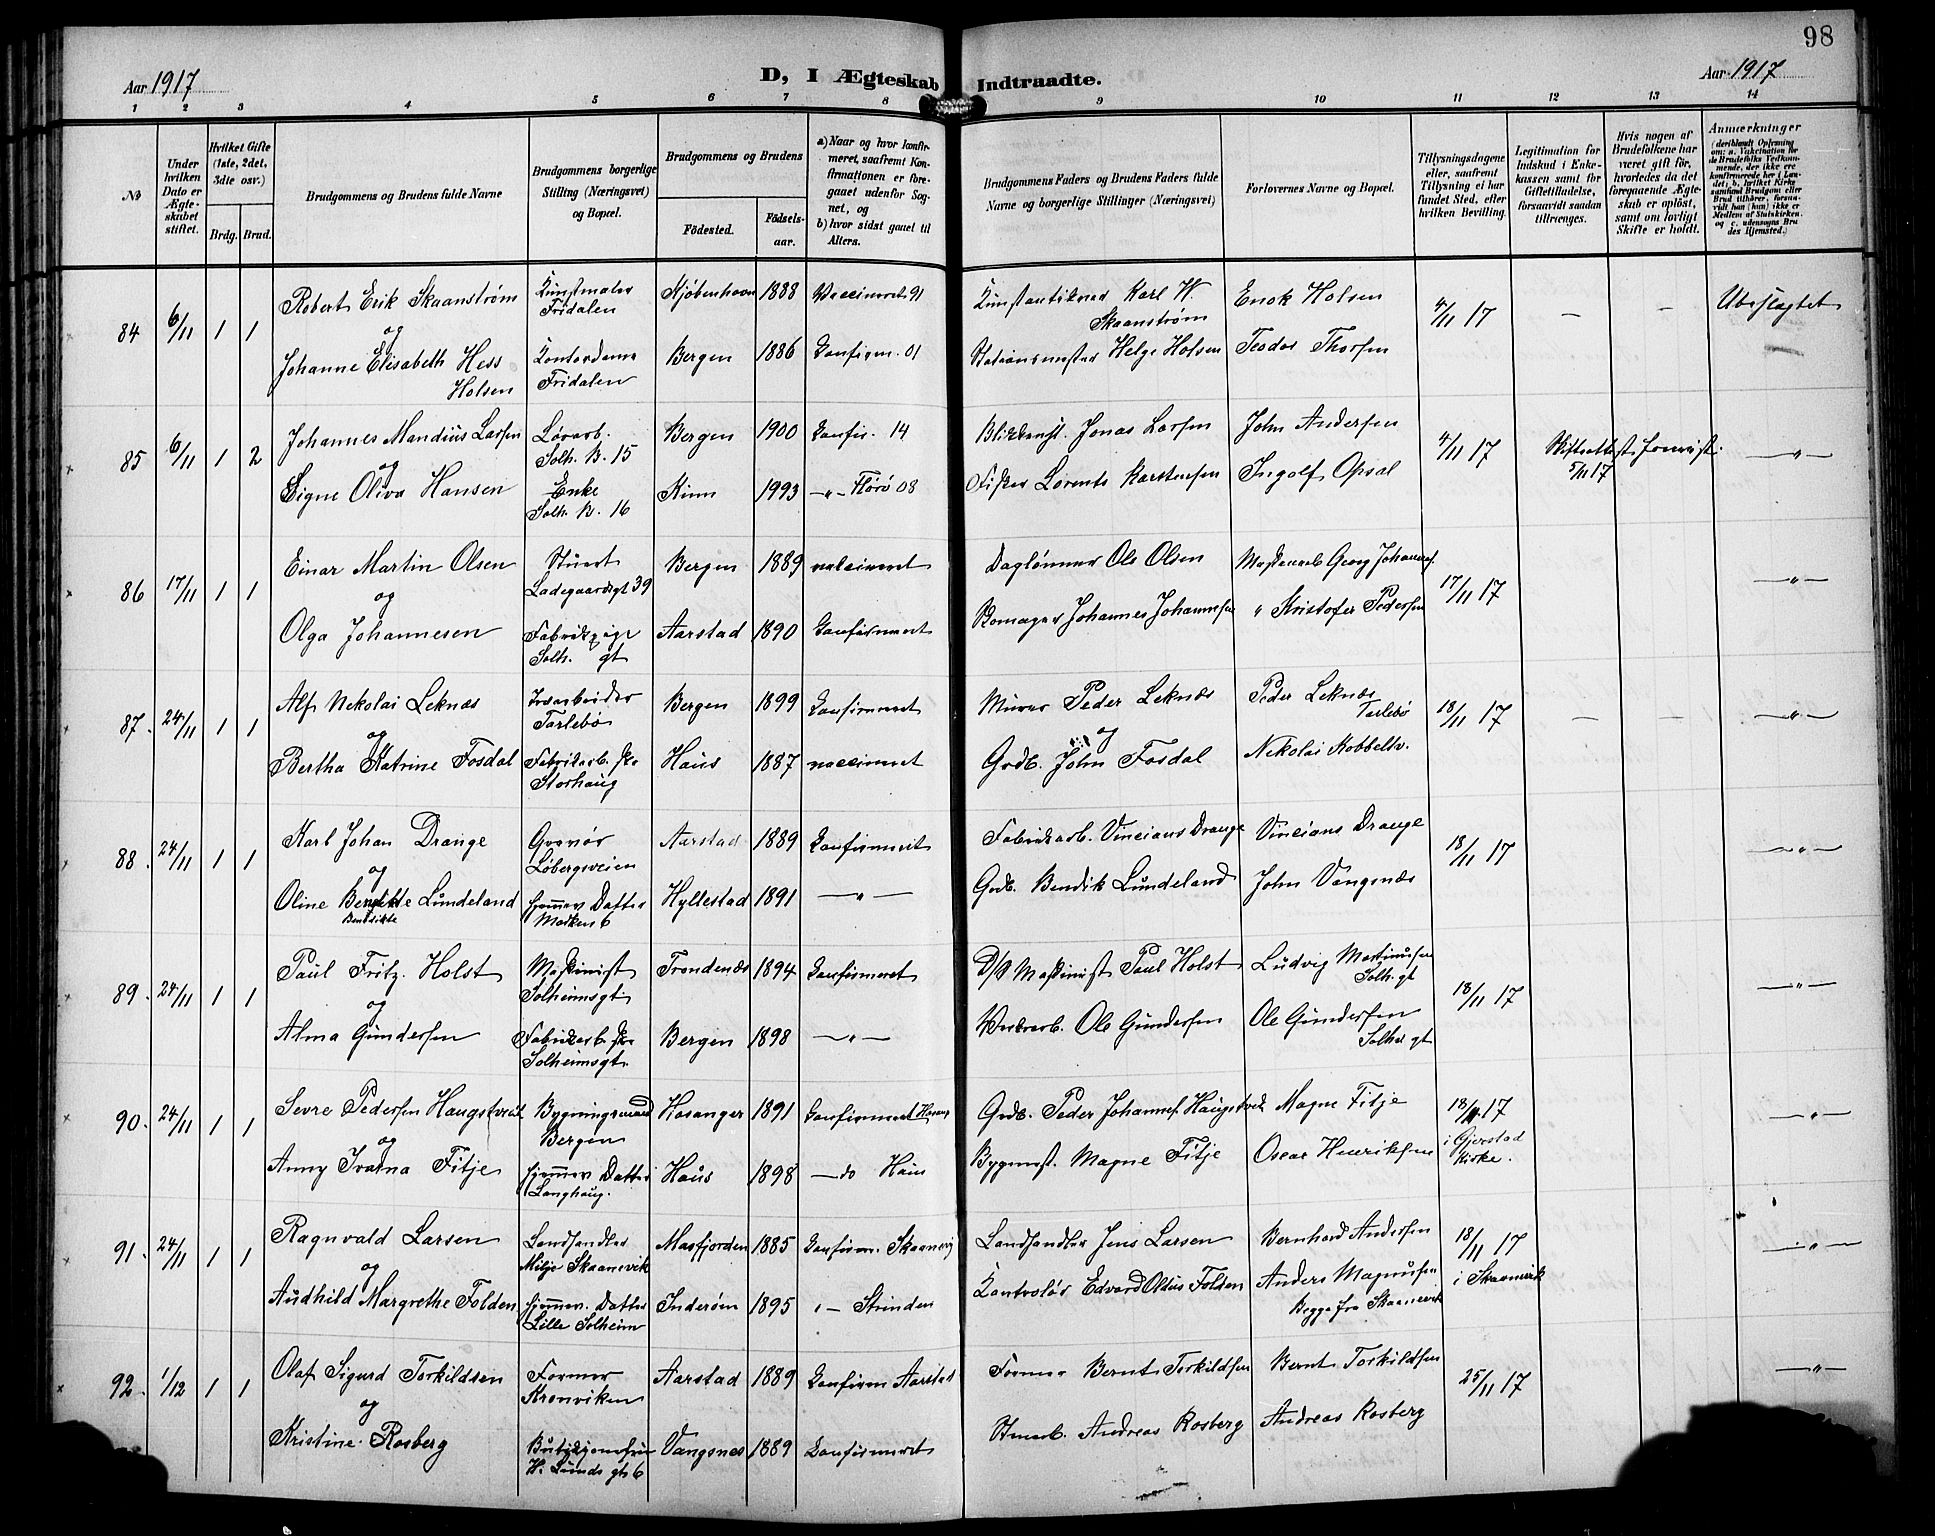 98
Aar 1917
D, I Ægteskab Indtraadte.
Aar 1917
1 2 3 4 5 6 7 8 9 10 11 12 13 14
№
Under hvilken Dato er Ægteskabet stiftet.
Hvilket Gifte (1ste, 2det, 3die osv.)
Brdg. Brud.
Brudgommens og Brudens fulde Navne
Brudgommens borgerlige Stilling (Næringsvei) og Bopæl.
Brudgommens og Brudens
Fødested.
Fødselsaar.
a) Naar og hvor konfirmeret, saafremt Konfirmationen er foregaaet udenfor Sognet, og
b) hvor sidst gaaet til Alters.
Brudgommens Faders og Brudens Faders fulde Navne og borgerlige Stillinger (Næringsvei)
Forlovernes Navne og Bopæl.
Tillysningsdagene eller, saafremt Tillysning ei har fundet Sted, efter hvilken Bevilling.
Legitimation for Indskud i Enkekassen samt for Giftetilladelse, forsaavidt saadan tiltrænges.
Hvis nogen af Brudefolkene har været gift før, hvorledes da det foregaaende Ægteskab er opløst, samt om lovligt Skifte er holdt.
Anmærkninger
84 6/11 1 1 Robert Erik Skaanstrøm Kunstmaler Fridalen Kjøbenhavn 1888 Vaccineret 91 Karl W. Skaanstrøm Enok Holsen 4/11 17 — — Ubeslægtet
og
Johanne Elisabeth Hess Holsen Kontordame Fridalen Bergen 1886 Konfirm. 01 Stationsmester Helge Holsen Teodor Thorsen
85 6/11 1 2 Johannes Mandius Larsen Løsarb. Solh. B. 15 Bergen 1900 Konfir. 14 Jonas Larsen John Andersen 4/11 17 Skifteattest forevist 5/11 17 —"—
og
Signe Oliva Hansen Enke Solh. B. 16 Kinn 1993 —"— Florø 08 Fisker Lorents Karstensen Ingolf Opsal
86 17/11 1 1 Einar Martin Olsen Stuert Ladegaardsgt 39 Bergen 1889 vaccineret Daglønner Ole Olsen Georg Johannes. 17/11 17 —"—
og
Olga Johannesen Fabrikpige Solh. gt Aarstad 1890 Konfirmeret Johannes Johannesen " Kristofer Pedersen
87. 24/11 1 1 Alf Nikolai Leknæs Tarlebø Bergen 1899 Konfirmeret Murer Peder Leknæs Peder Leknæs Tarlebø 18/11 17 — — —"—
og og
Bertha Katrine Fosdal Fabrikarb.ske Storhaug Haus 1887 vaccineret Grdb. John Fosdal Nikolai Kobbeltv.
88. 24/11 1 1 Karl Johan Drange Gravør Løbergsveien Aarstad 1889 Konfirmeret Fabrikarb. Vincians Drange Vincians Drange 18/11 17 —"—
og
Oline Lundeland Benedikte hjemmev. Datter Marken 6 Hyllestad 1891 —"— Grdb. Bendik Lundeland John Vangsnæs
89. 24/11 1 1 Paul Fritz. Holst Maskinist Solheimsgt Trondenæs 1894 Konfirmeret D/S Maskinist Paul Holst Ludvig Martinusen Solh. gt 18/11 17 —"—
og
Alma Gundersen Fabrikarb.ske Solheimsgt. Bergen 1898 —"— Verkarb. Ole Gundersen Ole Gundersen Solhei gt
90. 24/11 1 1 Sevre Pedersen Haugstveit Bygningsmand Bergen Hosanger 1891 Konfirmeret Hosang Grdb. Peder Johannes. Haugstveit Magne Fitje 18/11 17 i Gjerstad Kirke. —"—
og
Anny Ivarna Fitje hjemmev. Datter Langhaug. Haus 1898 —do Haus Bygmest. Magne Fitje Oscar Henriksen
91. 24/11 1 1 Ragnvald Larsen Landhandler Milje Skaanevik Masfjorden 1885 Konfirm. Skaanevig Landhandler Jens Larsen Bernhard Andersen 18/11 17 i Skaanevik —"—
og
Audhild Margrethe Folden hjemmev. Datter Lille Solheim Inderøen 1895 "— Strinden Kontrolør Edvard Oldus Folden Anders Magnusen Begge fra Skaanevik
92. 1/12 1 1 Olaf Sigurd Torkildsen Former Kronviken Aarstad 1889 Konfirm Aarstad Former Bernt Torkildsen Bernt Torkildsen 25/11 17 —"—
og
Kristine Rosberg H. Lunds gt 6 Vangsnes 1889 Konfirmeret Andreas Rosberg Andreas Rosberg